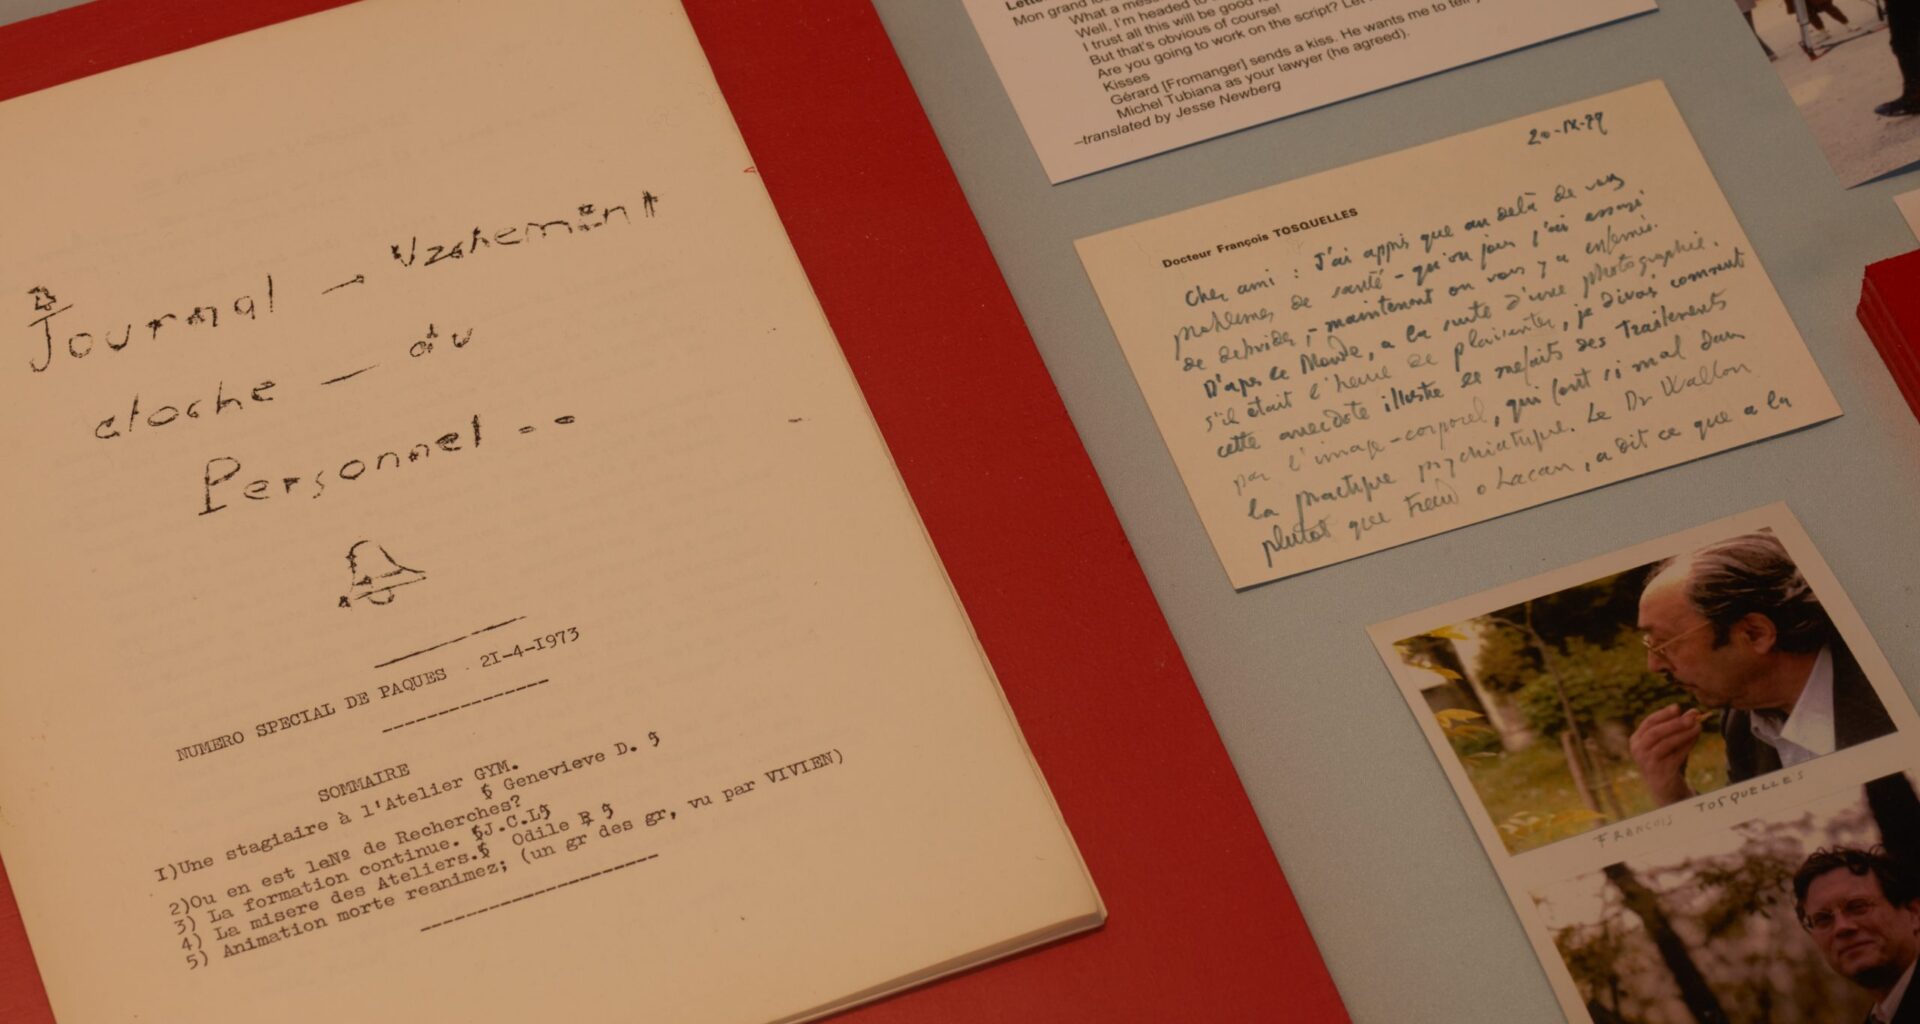 Journal — Vachement
cloche — du
Personnel - -
NUMERO SPECIAL DE PAQUES . 2I-4-I973
SOMMAIRE
I)Une stagiaire à l'Atelier GYM.
$ Genevieve D. $
2)Ou en est leNº de Recherches?
3) La formation continue. $J.C.L$
4) La misere des Ateliers.$ Odile R $
5) Animation morte reanimez; (un gr des gr, vu par VIVIEN)
Mon grand
What a mess
Well, I'm headed to
I trust all this will be good
But that's obvious of course!
Are you going to work on the script? Let
Kisses
Gérard [Fromanger] sends a kiss. He wants me to tell
Michel Tubiana as your lawyer (he agreed).
–translated by Jesse Newberg
Docteur François TOSQUELLES
Cher ami : J'ai appris que au delà de vos
problemes de santé - qu'un jour j'ai essayé
de - maintenant on vous y a enfermé.
D'apres le Monde, a la suite d'une photographie.
s'il était l'heure de plaisanter, je dirais comment
cette anecdote illustre les mefaits des traitements
par l'image-corporel, qui font si mal dans
la practique psychiatrique. Le Dr Wallon
plutot que Freud o Lacan, a dit ce que a la
FRANCOIS TOSQUELLES